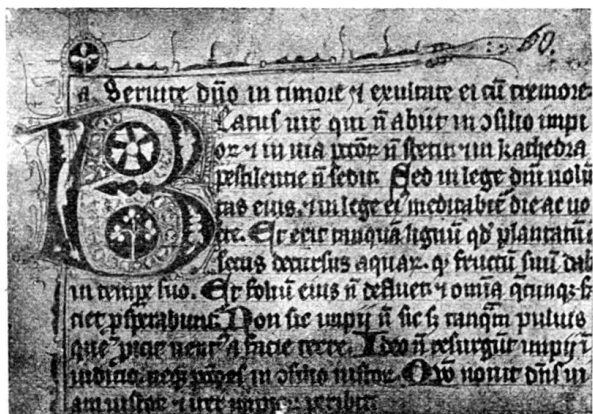 60.
a Seruite dn̄o in timore ⁊ exultate ei cū tremore
Beatus uir̄ qui n̄ abiit in ɔsilio impi
oꝝ ⁊ in uia pctōꝝ n̄ stetit ⁊ in kathedra
pestilentie n̄ sedit. Sed in lege dn̄i uolū
tas eius. ⁊ in lege ei᷒ meditabit̄ die ac no
cte. Et erit tanquā lignū qd̓ plantatū ē
secus decursus aquaꝝ. qͥ fructū suū dab
in temꝑe suo. Et foliū eius n̄ defluet. ⁊ om̄ia q̄cunqꝫ fa
ciet ꝓsꝑabunt̄. Non sic impij n̄ sic sꝫ tanq̄m puluis
que ꝓicit uent᷒ a facie terre. Ideo n̄ resurgūt impij ī
iudicio. neqꝫ in ɔsilio iustoꝝ. Qm̄ nouit dn̄s ui
am iustoꝝ ⁊ iter impioꝝ peribit